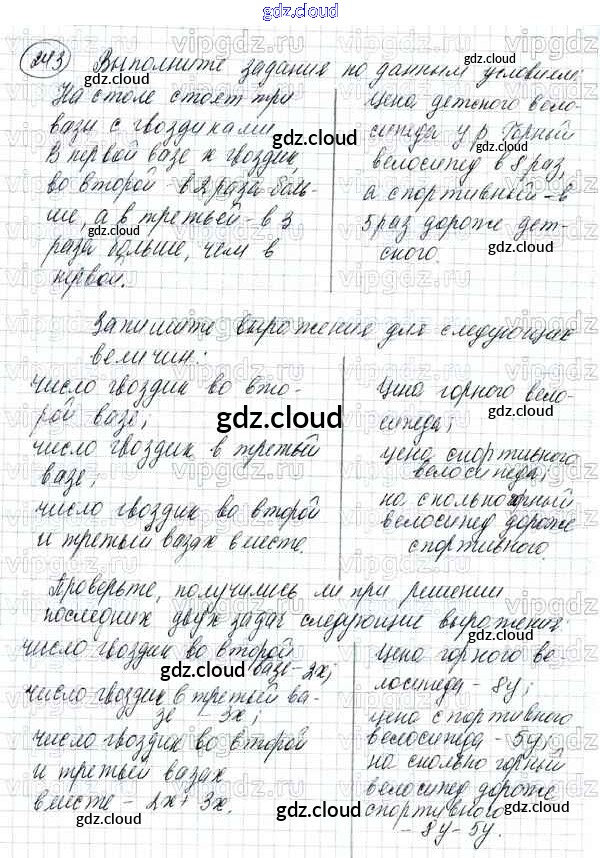 gdz.cloud
243 Выполните задания по данным условиям:
На столе стоят три
вазы с гвоздиками.
В первой вазе x гвоздик,
во второй - в 2 раза боль-
ше, а в третьей - в 3
раза больше, чем в
первой.
Цена детского вело-
сипеда y р. Горный
велосипед в 8 раз,
а спортивный - в
5 раз дороже дет-
ского.
Запишите выражения для следующих
величин:
число гвоздик во вто-
рой вазе;
число гвоздик в третьей
вазе;
число гвоздик во второй
и третьей вазах вместе.
Цена горного вело-
сипеда;
цена спортивного
велосипеда;
на сколько горный
велосипед дороже
спортивного.
Проверьте, получились ли при решении
последних двух задач следующие выражения:
число гвоздик во второй
вазе - 2x;
число гвоздик в третьей ва-
зе - 3x;
число гвоздик во второй
и третьей вазах
вместе - 2x + 3x.
Цена горного ве-
лосипеда - 8y;
цена спортивного
велосипеда - 5y;
на сколько горный
велосипед дороже
спортивного
- 8y - 5y.